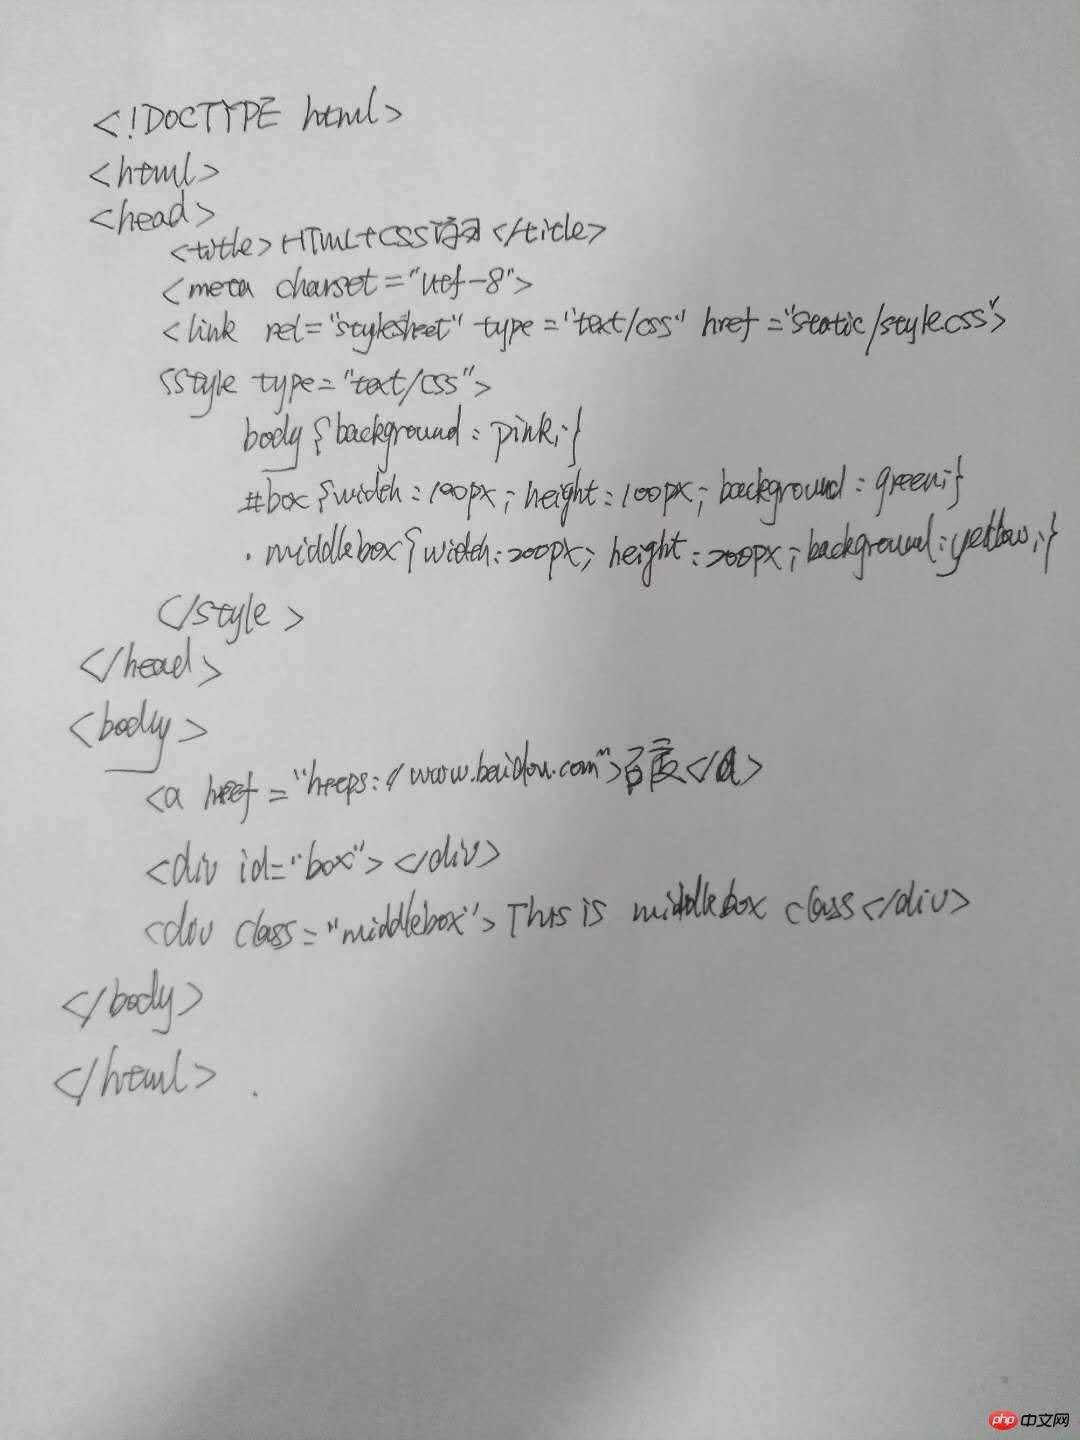 <!DOCTYPE html>
<html>
<head>
<title>HTML+CSS语习</title>
<meta charset="utf-8">
<link rel="stylesheet" type="text/css" href="static/style.css">
<style type="text/css">
body{background:pink;}
#box{width:100px;height:100px;background:green;}
.middlebox{width:200px;height:200px;background:yellow;}
</style>
</head>
<body>
<a href="https://www.baidu.com">百度</a>
<div id="box"></div>
<div class="middlebox">This is middlebox class</div>
</body>
</html>
php 中文网